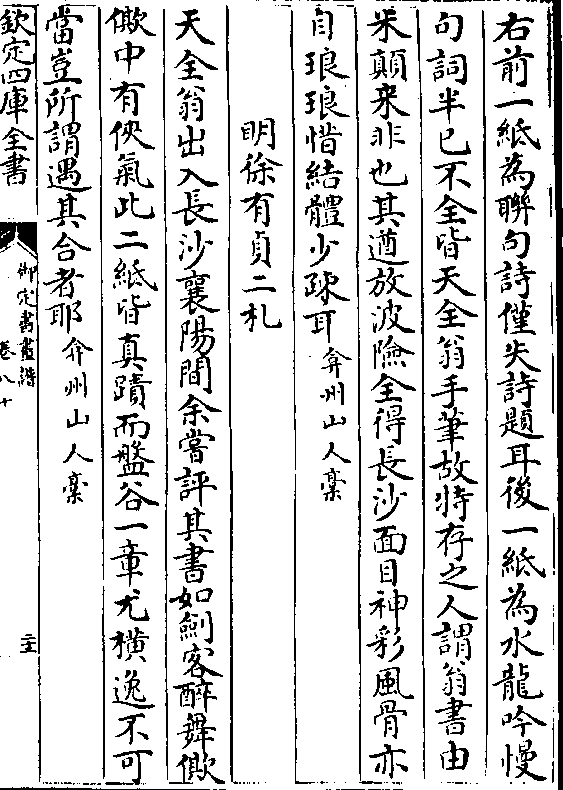 右前一紙為聯句詩僅失詩題耳後一紙為水龍吟慢
句詞半已不全皆天全翁手筆故特存之人謂翁書由
米顛来非也其遒放波險全得長沙面目神彩風骨亦
自琅琅惜結體少疎耳弇州山人稾
明徐有貞二札
天全翁出入長沙襄陽間余嘗評其書如劍客醉舞僛
僛中有俠氣此二紙皆真蹟而盤谷一章尤横逸不可
當豈所謂遇其合者耶弇州山人稾
欽定四庫全書
御定書畫譜
卷八十
二十五